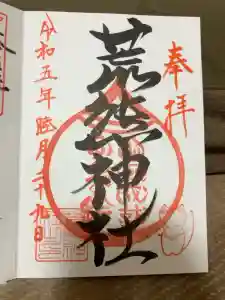 奉拝
荒熊神社
令和五年 睦月二十九日